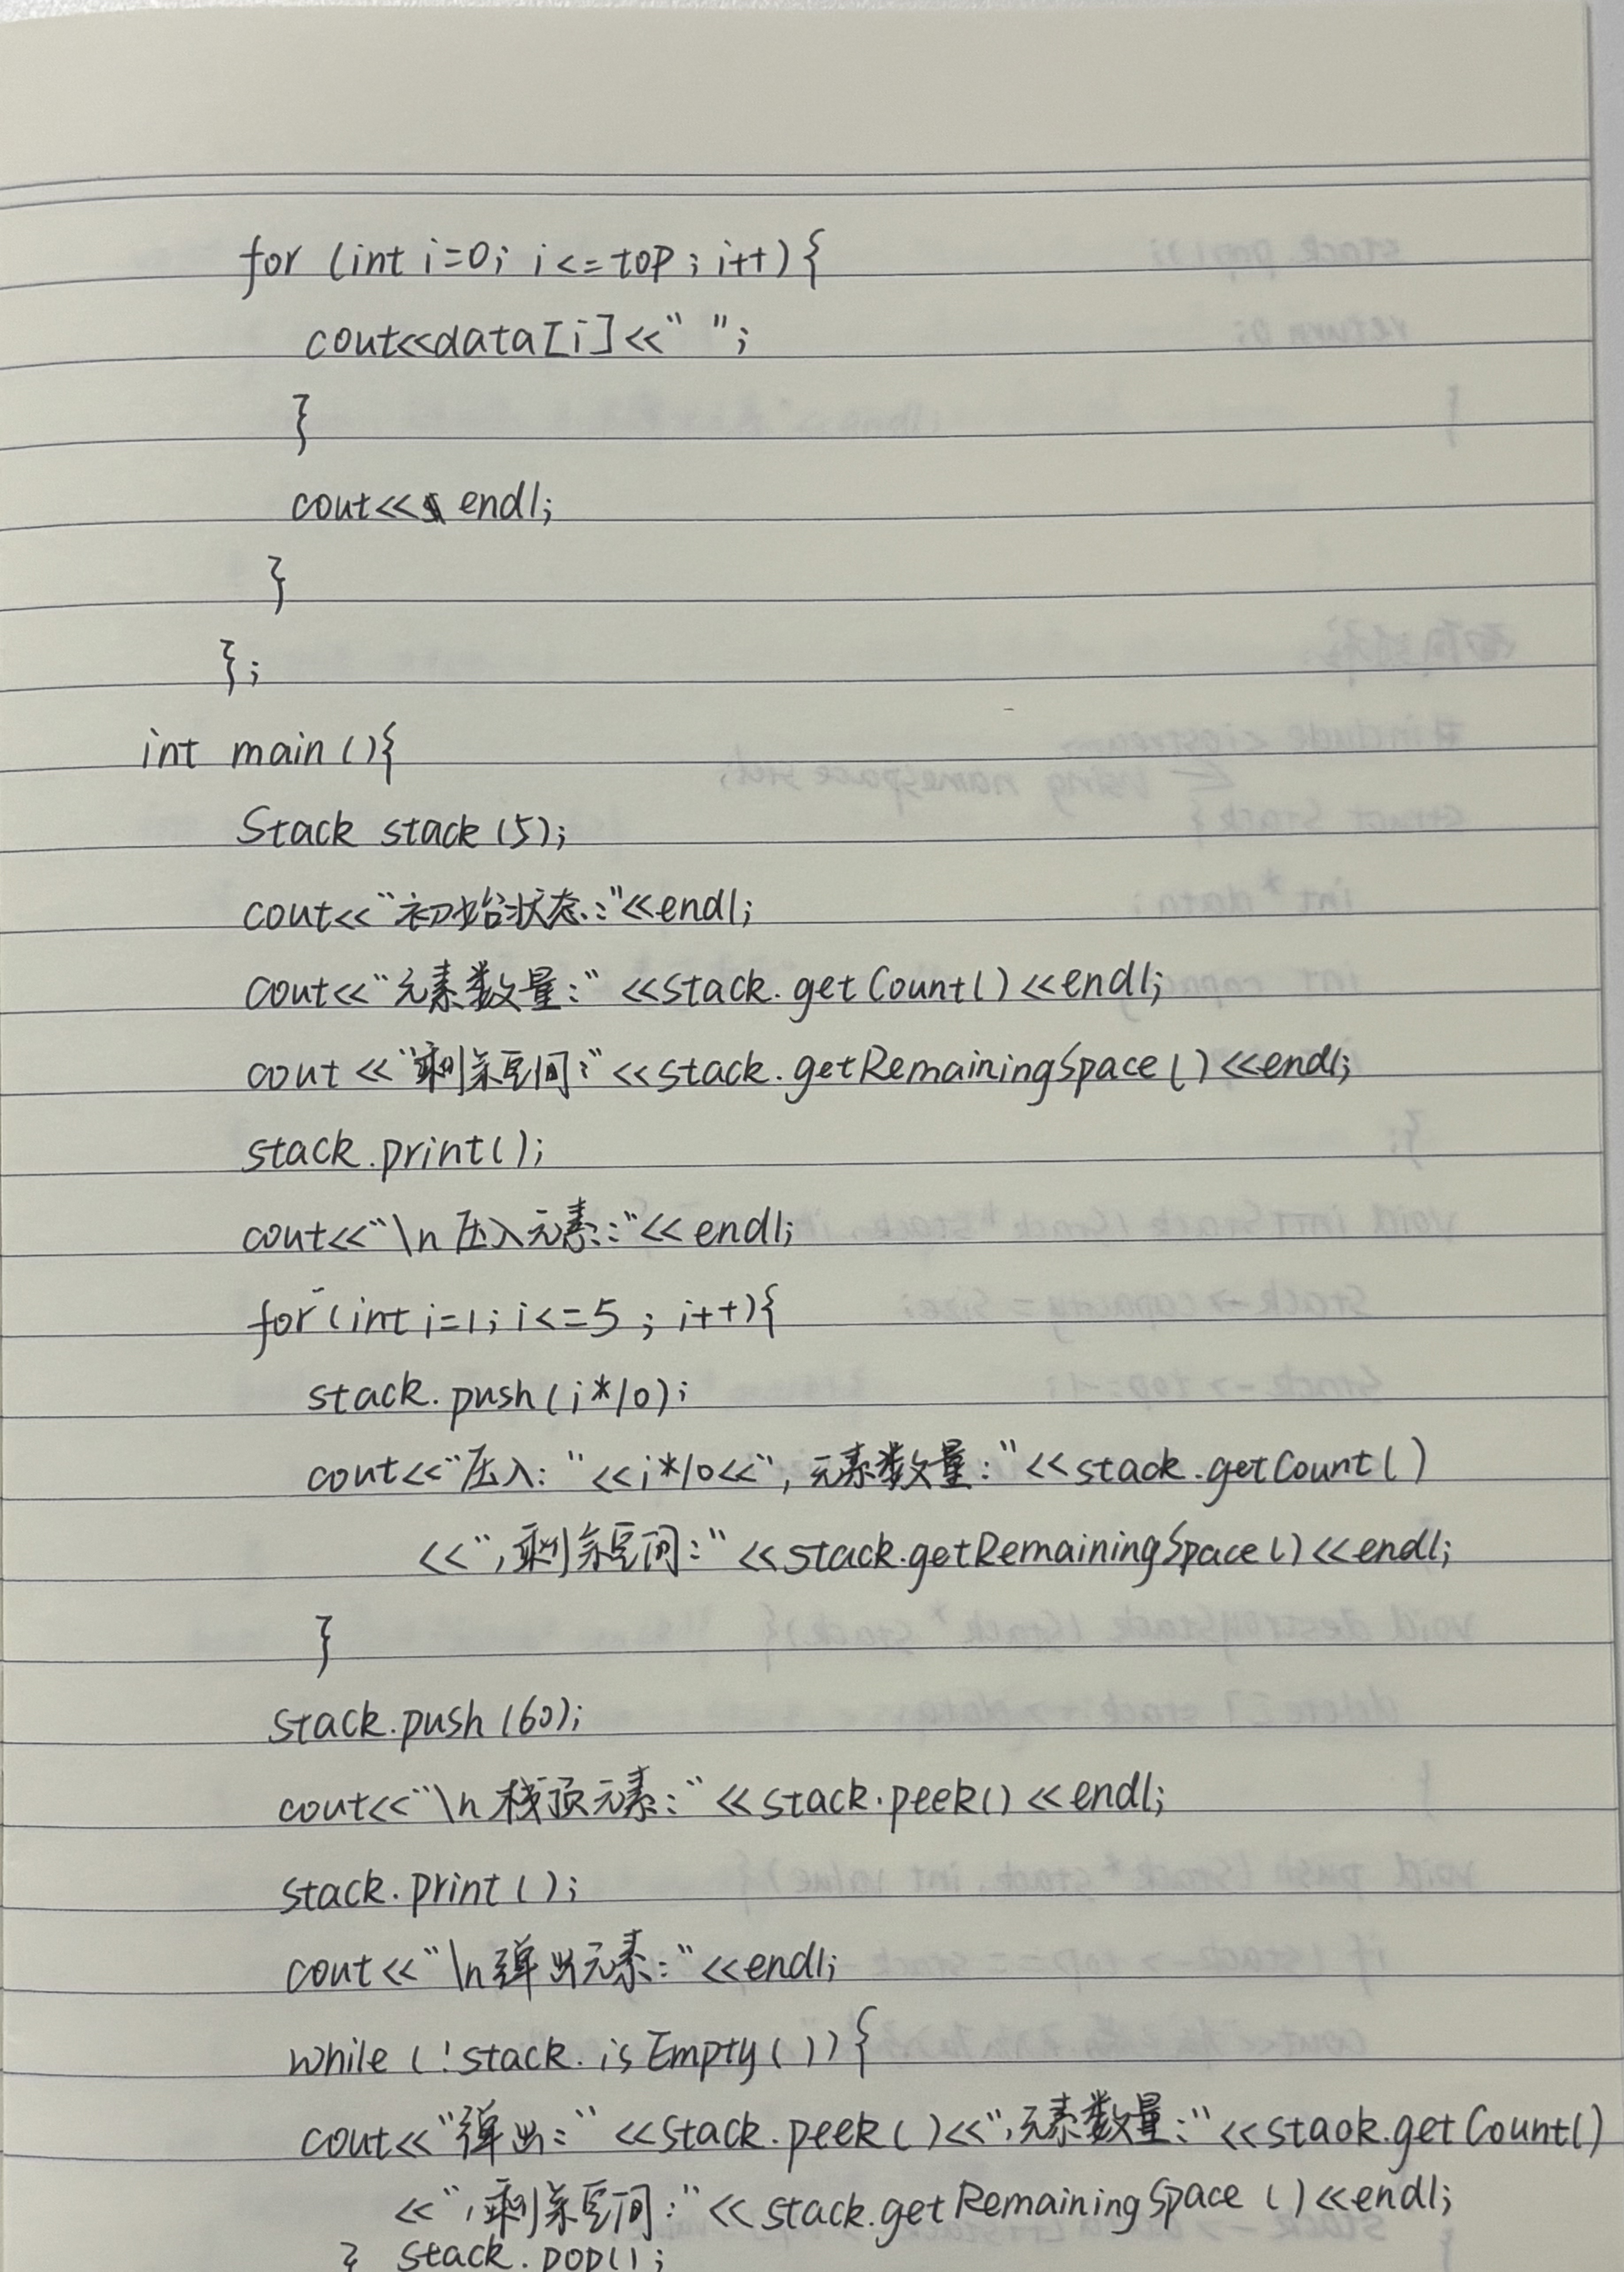 for (int i=0; i<=top; i++){
cout<<data[i]<<" ";
}
cout<< endl;
}
};
int main(){
Stack stack(5);
cout<<"初始状态:"<<endl;
cout<<"元素数量:"<<stack.getCount()<<endl;
cout<<"剩余空间:"<<stack.getRemainingSpace()<<endl;
stack.print();
cout<<"\n压入元素:"<<endl;
for(int i=1; i<=5; i++){
stack.push(i*10);
cout<<"压入: "<<i*10<<", 元素数量:"<<stack.getCount()
<<",剩余空间:"<<stack.getRemainingSpace()<<endl;
}
stack.push(60);
cout<<"\n栈顶元素:"<<stack.peek()<<endl;
stack.print();
cout<<"\n弹出元素:"<<endl;
while(!stack.isEmpty()){
cout<<"弹出:"<<stack.peek()<<",元素数量:"<<stack.getCount()
<<",剩余空间:"<<stack.getRemainingSpace()<<endl;
} stack.pop();